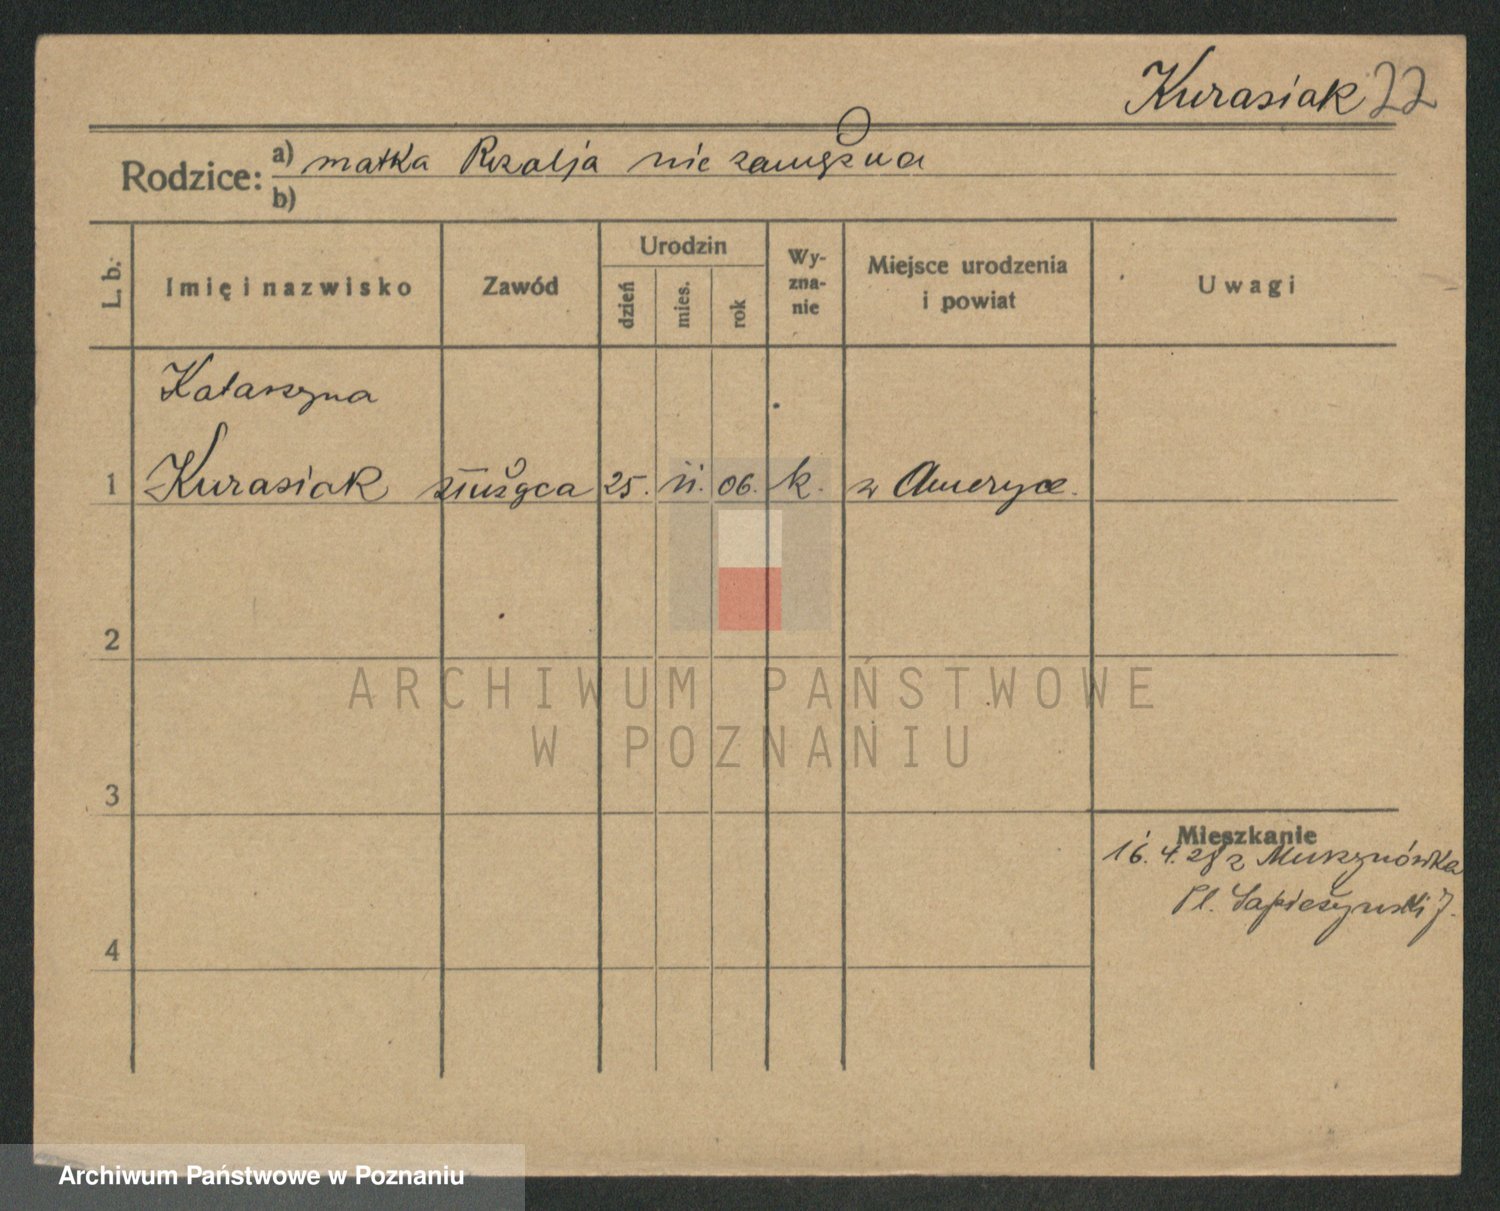 Kurasiak 22
Rodzice: a) matka Rozalja nie zamężna
b)
L. b. Imię i nazwisko Zawód Urodzin dzień mies. rok Wy-zna-nie Miejsce urodzenia i powiat Uwagi
Katarzyna
1 Kurasiak służąca 25. II. 06. k. w Ameryce.
2
ARCHIWUM PAŃSTWOWE
W POZNANIU
3
Mieszkanie
16. 4. 28 z Murzynówka
Pl. Sapieżyński 7.
4
Archiwum Państwowe w Poznaniu